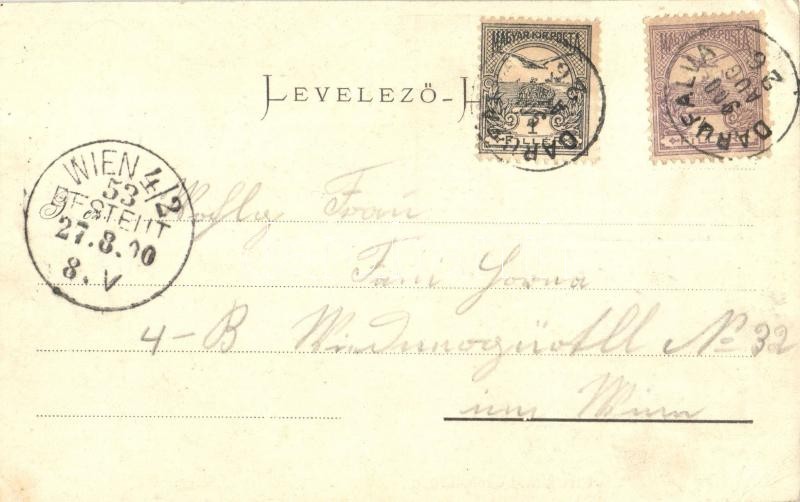 MAGYAR KIR. POSTA
MAGYAR KIR. POSTA
LEVELEZŐ-
1
FILLÉR
DARUFALVA
900 AUG 26
WIEN 4/2
53
BESTELLT
27.8.00
8.V
Frau
Fani Horna
4-B No 32
in Wien